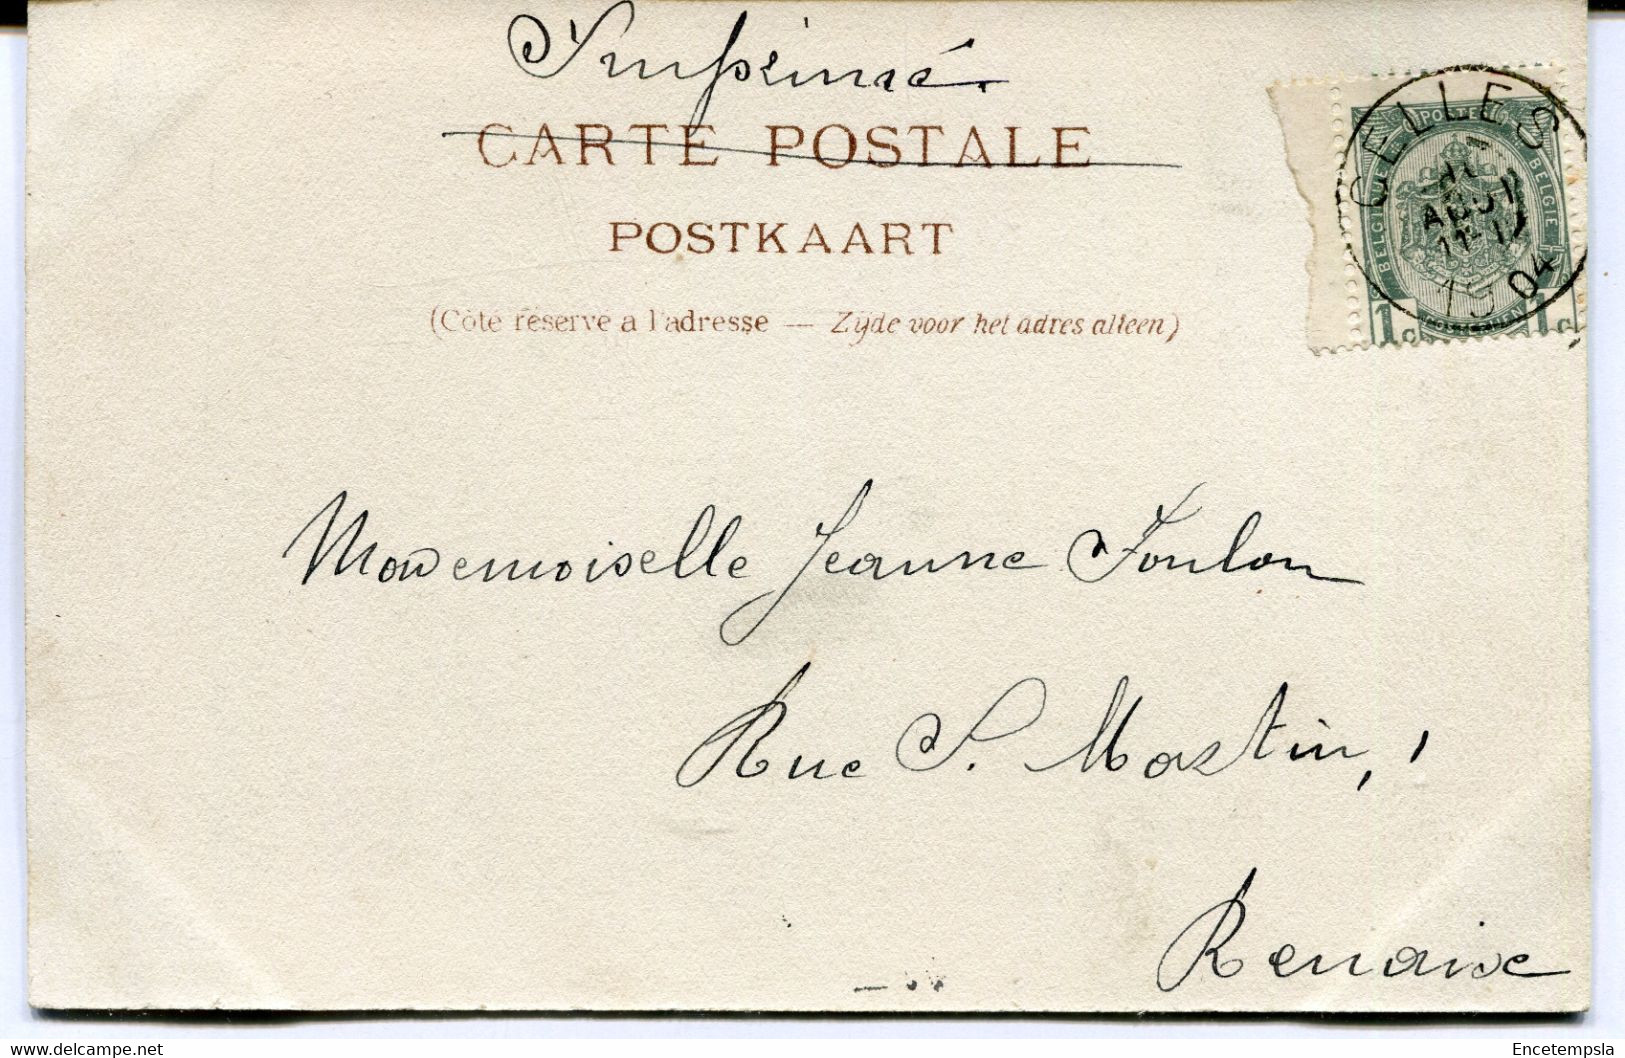 Imprimé.
CARTE POSTALE
POSTKAART
(Côté réservé a l'adresse — Zijde voor het adres alleen)
CELLES
AOUT
11-12
1904
POSTES
BELGIQUE BELGIË
POSTERIJEN
1c 1c
Mademoiselle Jeanne Foulon
Rue S. Martin, 1
Renaix
Encetempsla
www.delcampe.net